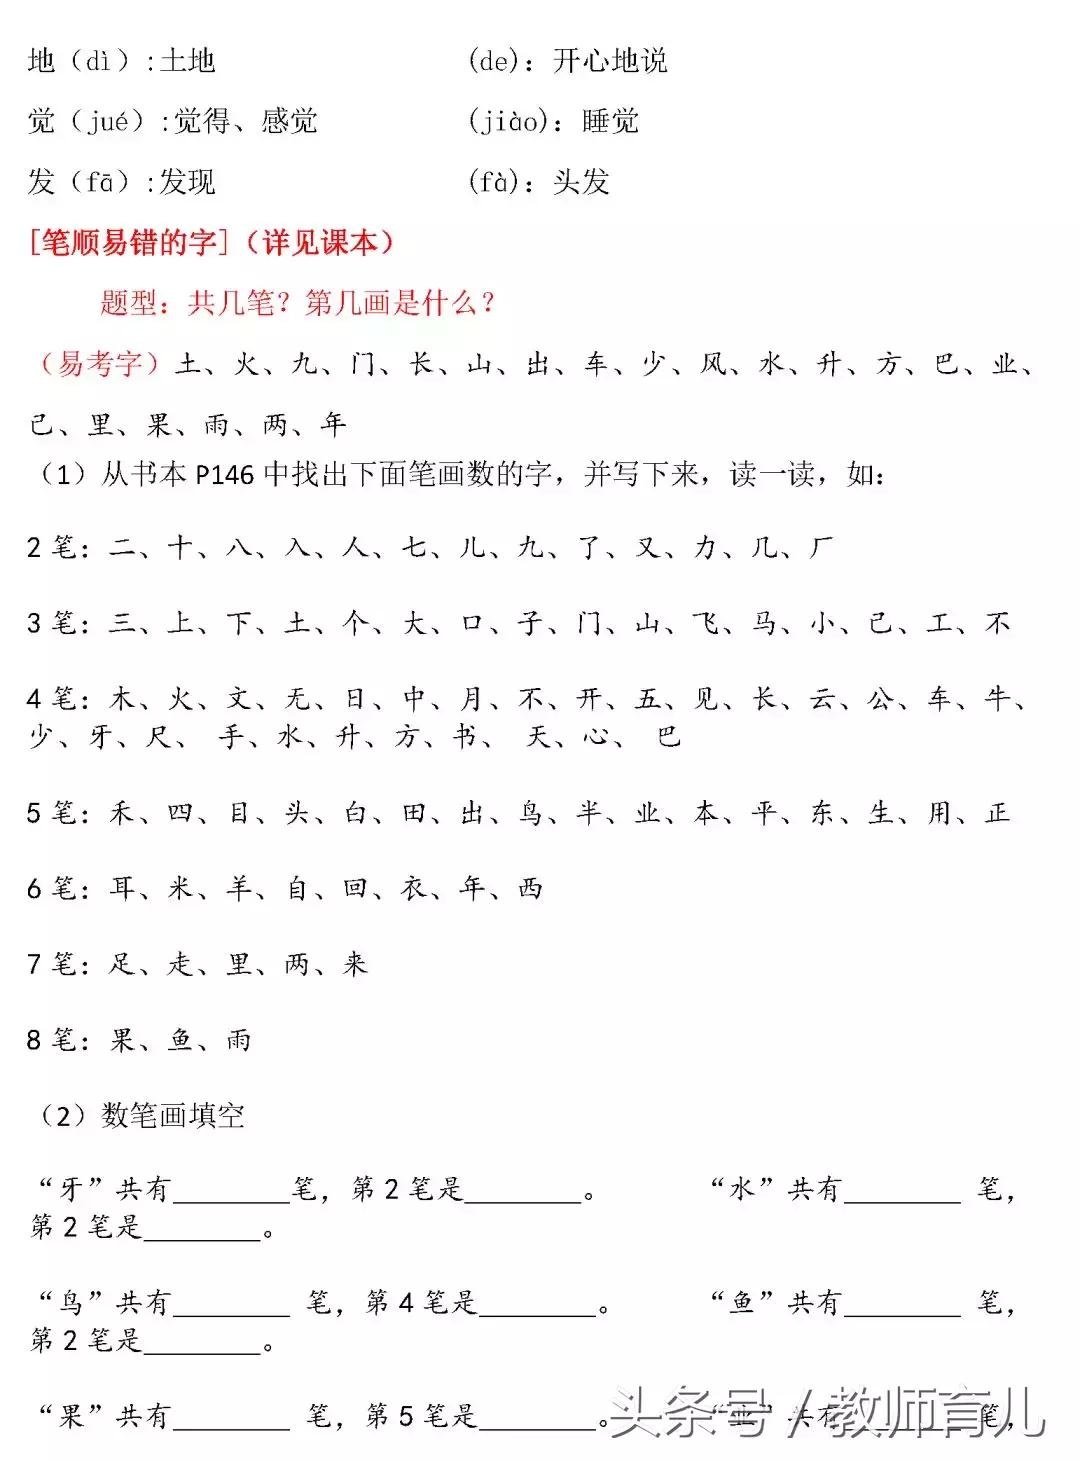 地（dì）:土地 (de)：开心地说
觉（jué）:觉得、感觉 (jiào)：睡觉
发（fā）:发现 (fà)：头发
[笔顺易错的字]（详见课本）
题型：共几笔？第几画是什么？
（易考字）土、火、九、门、长、山、出、车、少、风、水、升、方、巴、业、
己、里、果、雨、两、年
（1）从书本 P146 中找出下面笔画数的字，并写下来，读一读，如：
2 笔：二、十、八、入、人、七、儿、九、了、又、力、几、厂
3 笔：三、上、下、土、个、大、口、子、门、山、飞、马、小、己、工、不
4 笔：木、火、文、无、日、中、月、不、开、五、见、长、云、公、车、牛、
少、牙、尺、 手、水、升、方、书、 天、心、 巴
5 笔：禾、四、目、头、白、田、出、鸟、半、业、本、平、东、生、用、正
6 笔：耳、米、羊、自、回、衣、年、西
7 笔：足、走、里、两、来
8 笔：果、鱼、雨
（2）数笔画填空
“牙”共有________笔，第 2 笔是________。 “水”共有________ 笔，
第 2 笔是________。
“鸟”共有________ 笔，第 4 笔是________。 “鱼”共有________ 笔，
第 2 笔是________。
“果”共有________ 笔，第 5 笔是________。 “业”共有________ 笔，
头条号 / 教师育儿